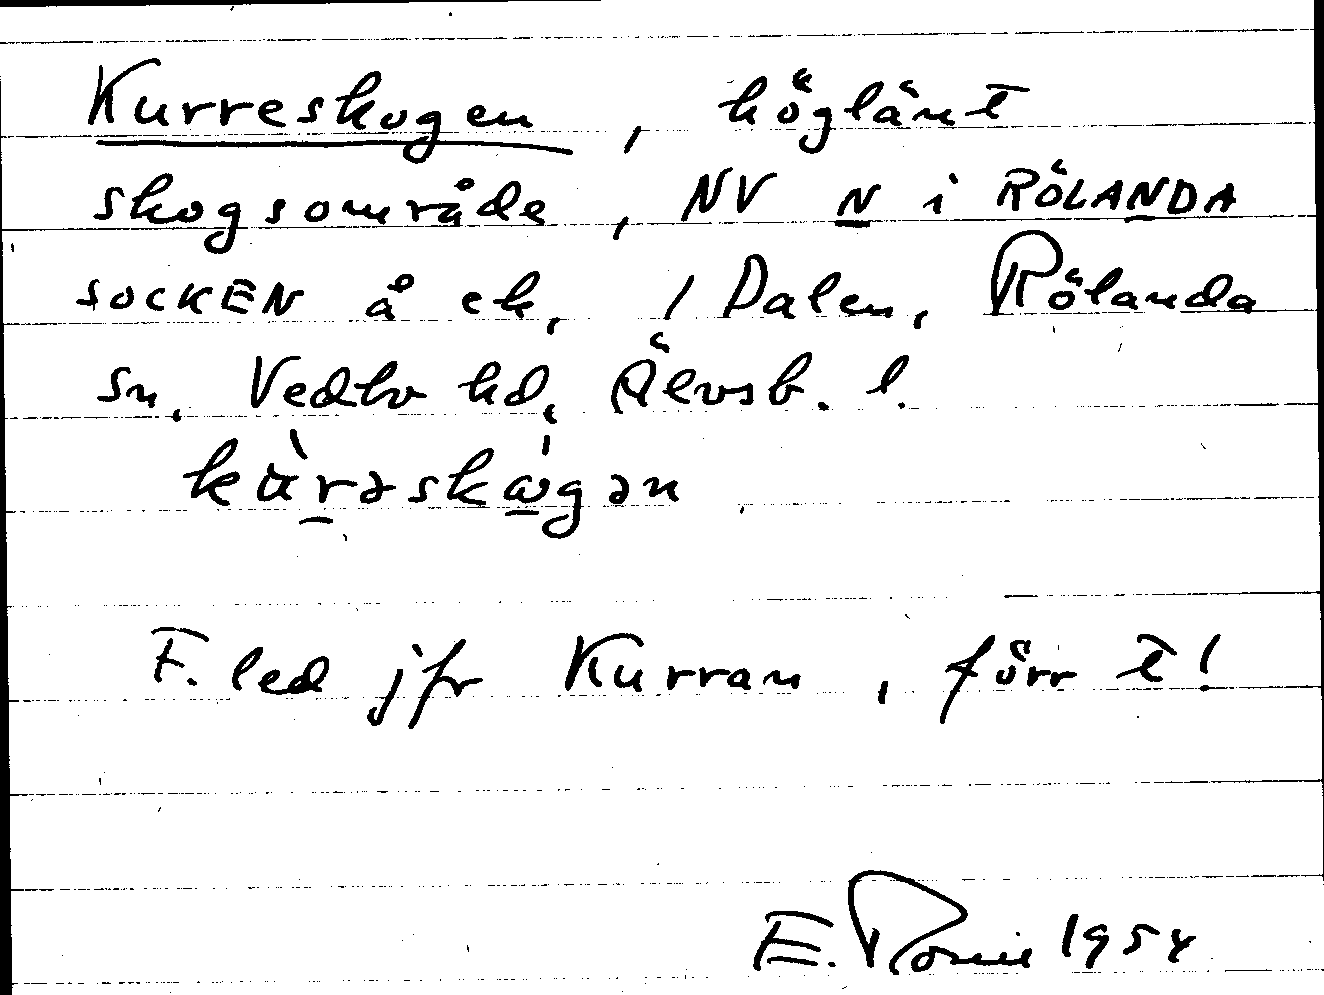 Kurreskogen, höglänt
skogsområde, NV N i RÖLANDA
SOCKEN å ek, / Dalen, Rölanda
sn, Vedbo hd, Älvsb. l.
kùrəskɷ́gən
F. led jfr Kurran, förr t!
E. 1954